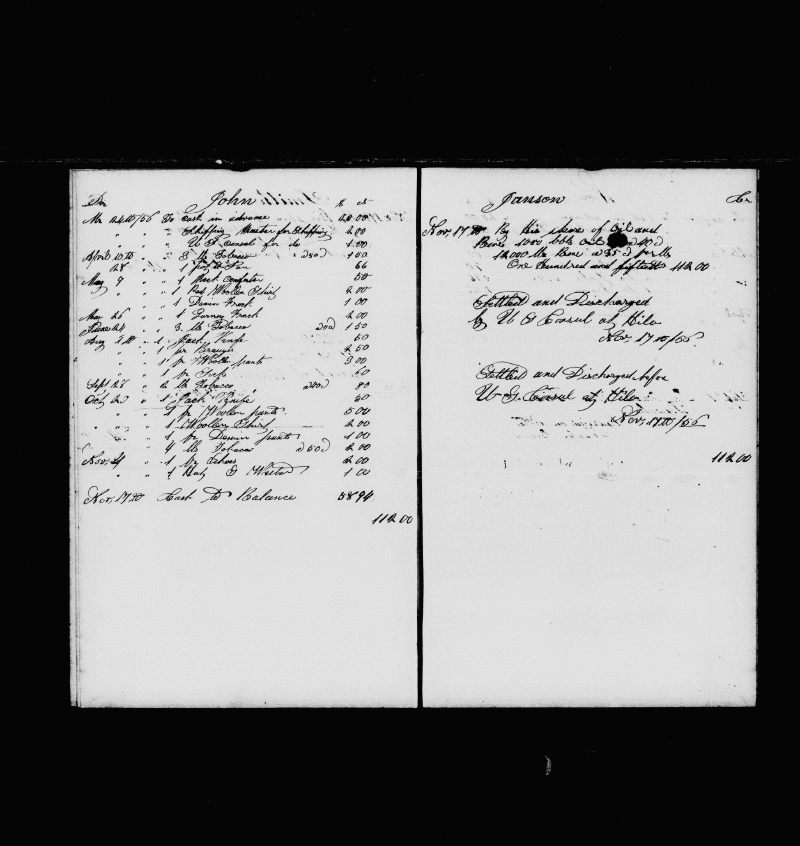 Dr John $ ct
Mr 24th/56 To cash in advance 28 00
" " " Shipping Master for Shipping 2 00
" " " U S Consul for do 1.00
April 10th " 3 lbs Tobacco a50d 1 50
" 28 " 1 66
May 9 " 1 Neck Comforter 50
" " 1 Red Woollen Shirt 2 00
" " 1 Denim Frock 1 00
May 26 " " 1 Gurney Frock 2 00
June 24 " " 3 lbs Tobacco 50d 1 50
Aug " 1 Jack Knife 50
" " 1 pr 2 50
" " 1 pr Woollen pants 3 00
" " 1 pr 60
Sept 28 " 2 lbs Tobacco a40d 80
Oct 2 " 1 Jack Knife 50
" " 1 pr Woollen pants 5 00
" " 1 Woollen Shirt 2 00
" " 1 pr Denim pants 1 00
" " 4 lbs Tobacco a50d 2 00
Nov. " 1 pr Shoes 2 00
" " 1 & 1 00
Nov, 17th Cash To Balance 58 94
112 00
Janson Cr
Nov, 17th By His share of Oil and
Bone 1000 bbls Oil
12000 lbs Bone a 35 d per lb
One Hundred and fiftieth 112 00
Settled and Discharged
by U S Consul at Hilo
Nov, 17th/56.
Settled and Discharged before
U. S. Consul at Hilo
Nov, 17th/56
112 00